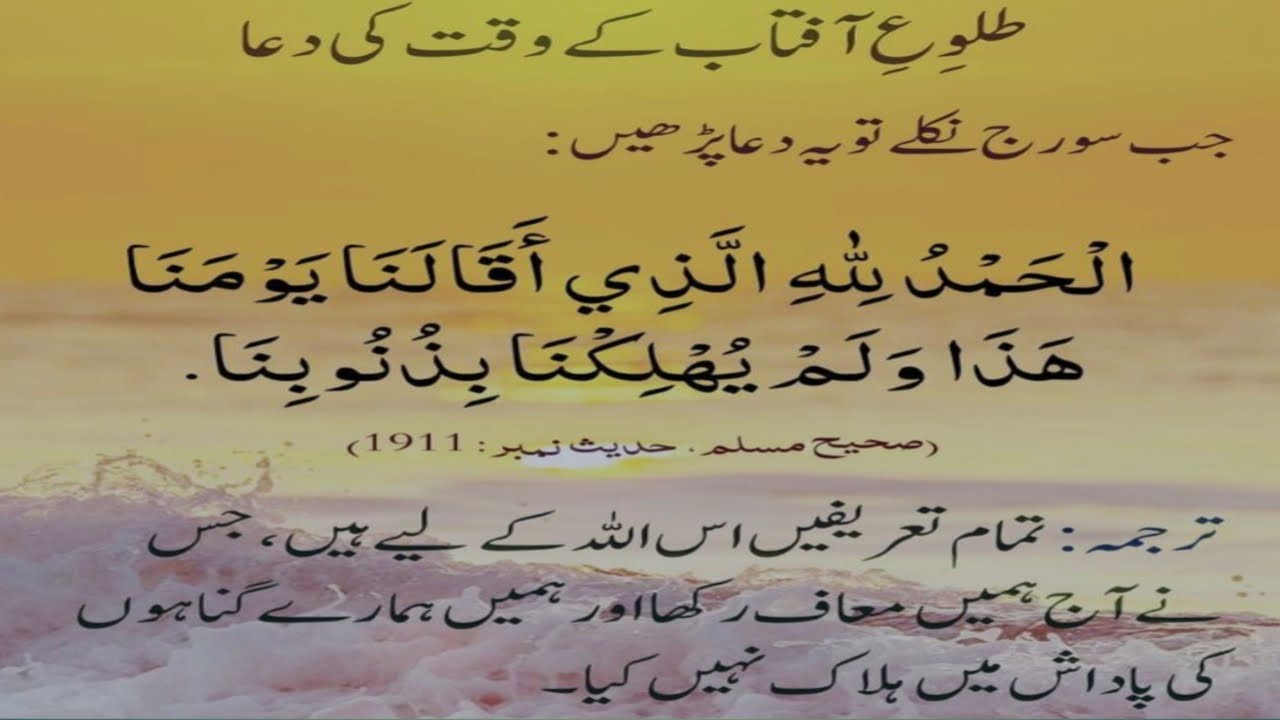 طلوعِ آفتاب کے وقت کی دعا
جب سورج نکلے تو یہ دعا پڑھیں:
الْحَمْدُ لِلّٰهِ الَّذِي أَقَالَنَا يَوْمَنَا
هَذَا وَلَمْ يُهْلِكْنَا بِذُنُوبِنَا.
(صحیح مسلم، حدیث نمبر: 1911)
ترجمہ: تمام تعریفیں اس اللہ کے لیے ہیں، جس
نے آج ہمیں معاف رکھا اور ہمیں ہمارے گناہوں
کی پاداش میں ہلاک نہیں کیا۔